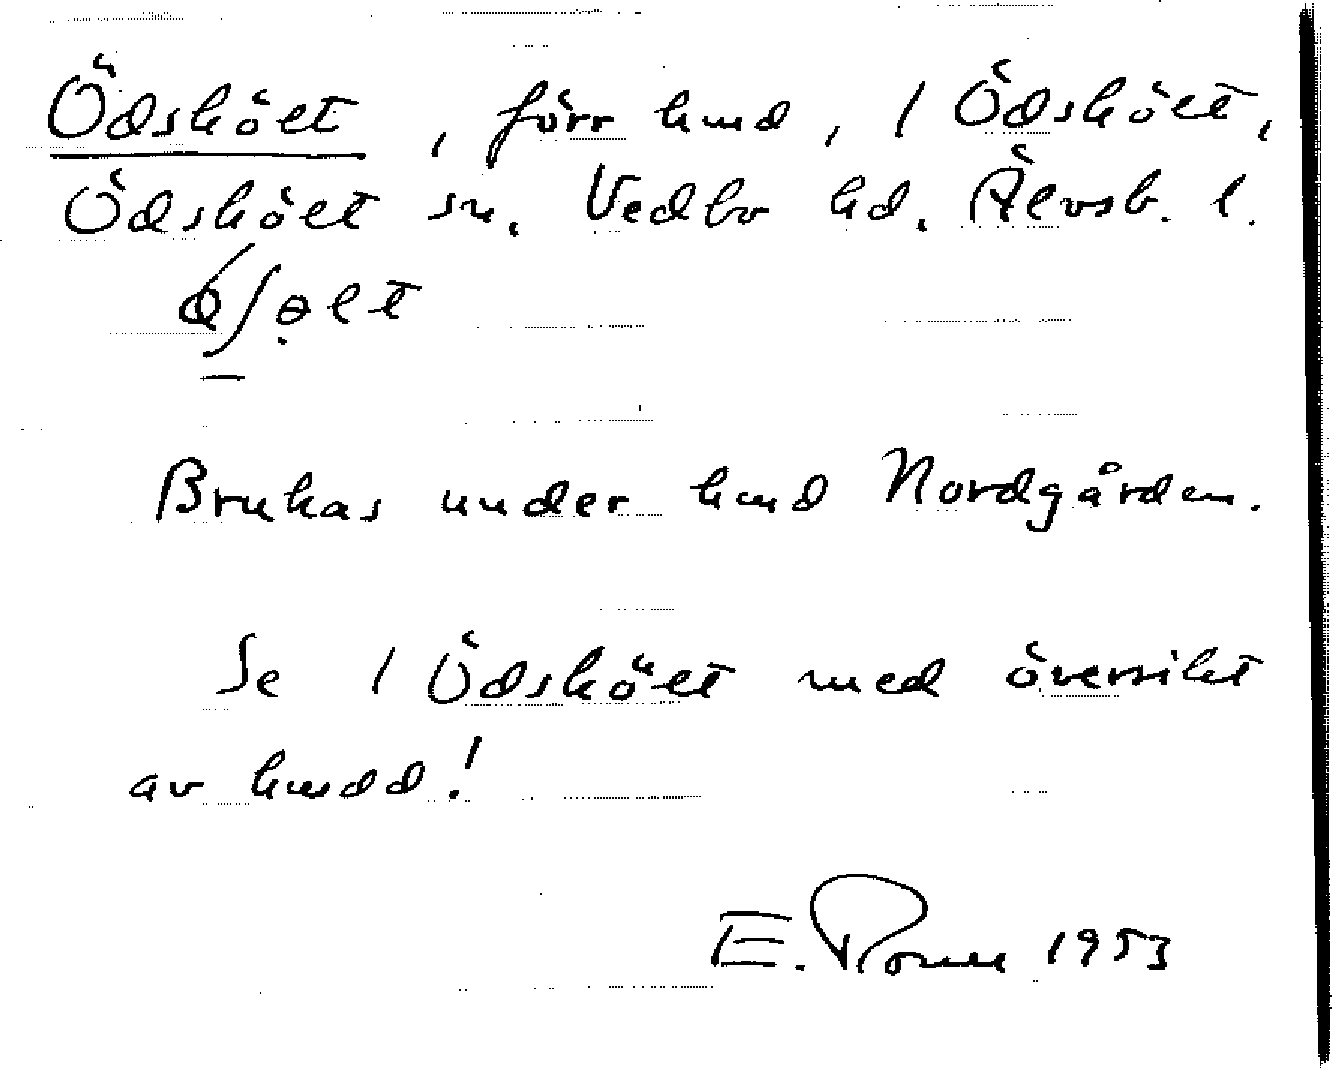 Ödskölt, förr hmd, 1 Ödskölt,
Ödskölt sn. Vedbo hd. Älvsb. l.
Brukas under hmd Nordgården.
Se 1 Ödskölt med översikt
av hmdd!
E. 1953